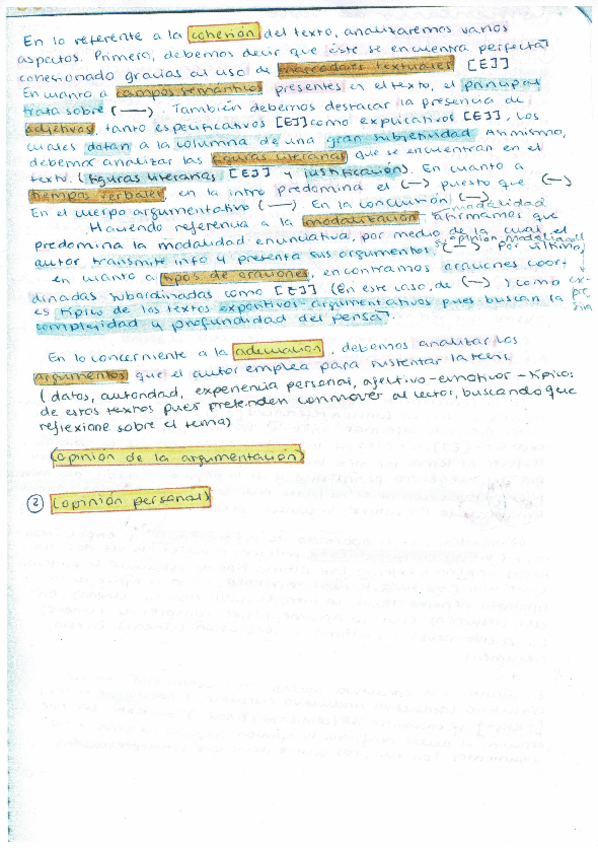 En lo referente a la cohesión del texto, analizaremos varios
aspectos. Primero, debemos decir que éste se encuentra perfectat
cohesionado gracias al uso de marcadores textuales [EJ]
En cuanto a campos semánticos presentes en el texto, el principal
trata sobre (—). También debemos destacar la presencia de
adjetivos, tanto especificativos [EJ] como explicativos [EJ], los
cuales dotan a la columna de una gran subjetividad. Asimismo,
debemos analizar las figuras literarias que se encuentran en el
texto. (figuras literarias [EJ] y justificación). En cuanto a
tiempos verbales, en la intro predomina el (—) puesto que (—)
En el cuerpo argumentativo (—) En la conclusión (—)
modalidad
Haciendo referencia a la modalización afirmamos que
predomina la modalidad enunciativa, por medio de la cual, el
autor transmite info y presenta sus argumentos, (—) Por último,
en cuanto a tipos de oraciones, encontramos oraciones coor-
dinadas subordinadas como [EJ] (En este caso, de (—) ) como
es típico de los textos expositivos-argumentativos pues buscan la
complejidad y profundidad del pensat.
En lo concerniente a la adecuación, debemos analizar los
argumentos que el autor emplea para sustentar la tesis.
(datos, autoridad, experiencia personal, afectivo-emotivos - típicos
de estos textos pues pretenden conmover al lector, buscando que
reflexione sobre el tema)
(opinión de la argumentación)
② (opinión personal)